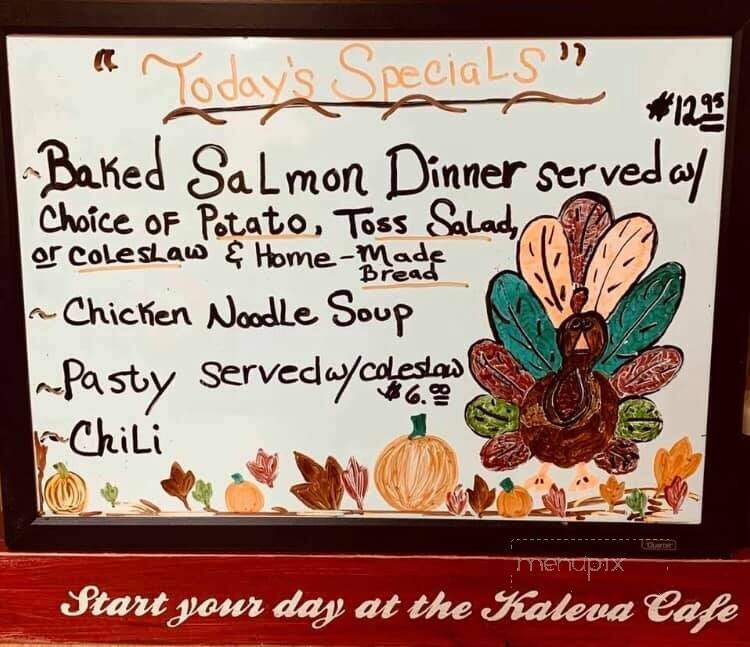 "Today's Specials"
$12.95
~Baked Salmon Dinner served w/
Choice of Potato, Toss Salad,
or coleslaw & Home-Made
Bread
~Chicken Noodle Soup
~Pasty served w/coleslaw
$6.00
~Chili
Quartet
menupix
Start your day at the Kaleva Cafe